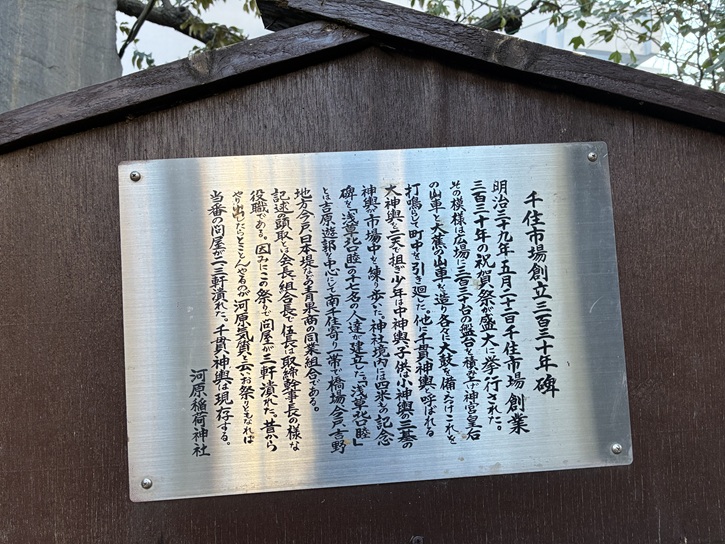 千住市場創立三百三十年碑
明治三十九年五月二十一日千住市場創業
三百三十年の祝賀祭が盛大に挙行された。
その模様は広場に三百三十台の盤台を積みなす神宮皇后
の山車と大熊の山車を造り各々に大鼓を備えつけこれを
打鳴らして町中を引き廻した。他に千貫神輿と呼ばれる
大神輿を二天で担ぎ少年は中神輿、子供小神輿の三基の
神輿が市場中を練り歩いた。神社境内には四米もの記念
碑を「浅草北口睦」の十七名の人達が建立した。「浅草北口睦」
とは吉原遊郭を中心にして南千住寄り一帯で橋場今戸吉野
地方今戸日本堤などの青果商の同業組合である。
記述の頭取とは会長組合長で伍長は取締幹事長の様な
役職である。因みにこの祭りで問屋が三軒潰れた。昔から
やり出したらとことんやるのが河原気質と云いお祭りともなれば
当番の問屋が二三軒潰れた。千貫神輿は現存する。
河原稲荷神社